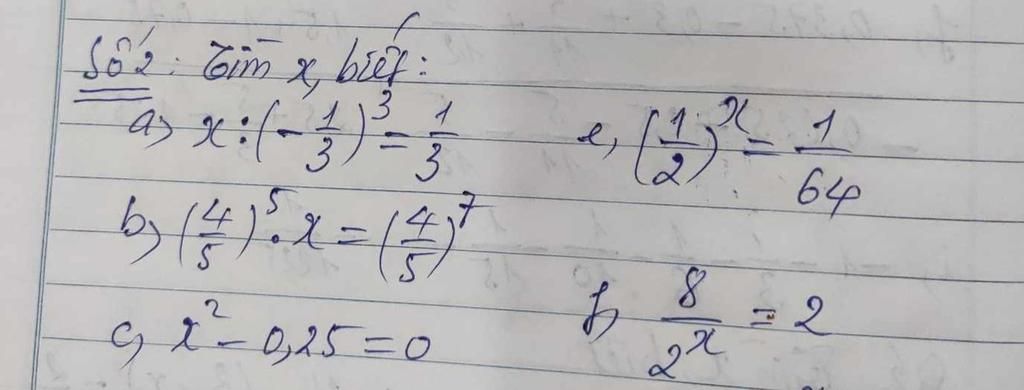 Số 2: Tìm x, biết:
a) x : (-1/3)^3 = 1/3
e, (1/2)^x = 1/64
b) (4/5)^5 . x = (4/5)^7
c) x^2 - 0,25 = 0
f, 8/2^x = 2